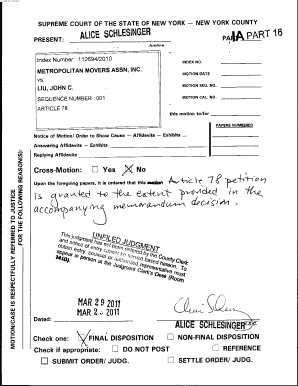 SUPREME COURT OF THE STATE OF NEW YORK – NEW YORK COUNTY
PRESENT: ALICE SCHLESINGER
Justice
IA PART 16
Index Number : 112694/2010
METROPOLITAN MOVERS ASSN, INC.
vs.
LIU, JOHN C.
SEQUENCE NUMBER : 001
ARTICLE 78
INDEX NO.
MOTION DATE
MOTION SEQ. NO.
MOTION CAL. NO.
this motion to/for
PAPERS NUMBERED
Notice of Motion/ Order to Show Cause – Affidavits – Exhibits ...
Answering Affidavits – Exhibits
Replying Affidavits
Cross-Motion: Yes No
Upon the foregoing papers, it is ordered that this motion Article 78 petition
is granted to the extent provided in the
accompanying memorandum decision.
UNFILED JUDGMENT
This judgment has not been entered by the County Clerk
and notice of entry cannot be served based hereon. To
obtain entry, counsel or authorized representative must
appear in person at the Judgment Clerk's Desk (Room
141B).
MOTION/CASE IS RESPECTFULLY REFERRED TO JUSTICE
FOR THE FOLLOWING REASON(S):
MAR 29 2011
Dated:
ALICE SCHLESINGER
Check one: FINAL DISPOSITION NON-FINAL DISPOSITION
Check if appropriate: DO NOT POST REFERENCE
SUBMIT ORDER/ JUDG. SETTLE ORDER/ JUDG.